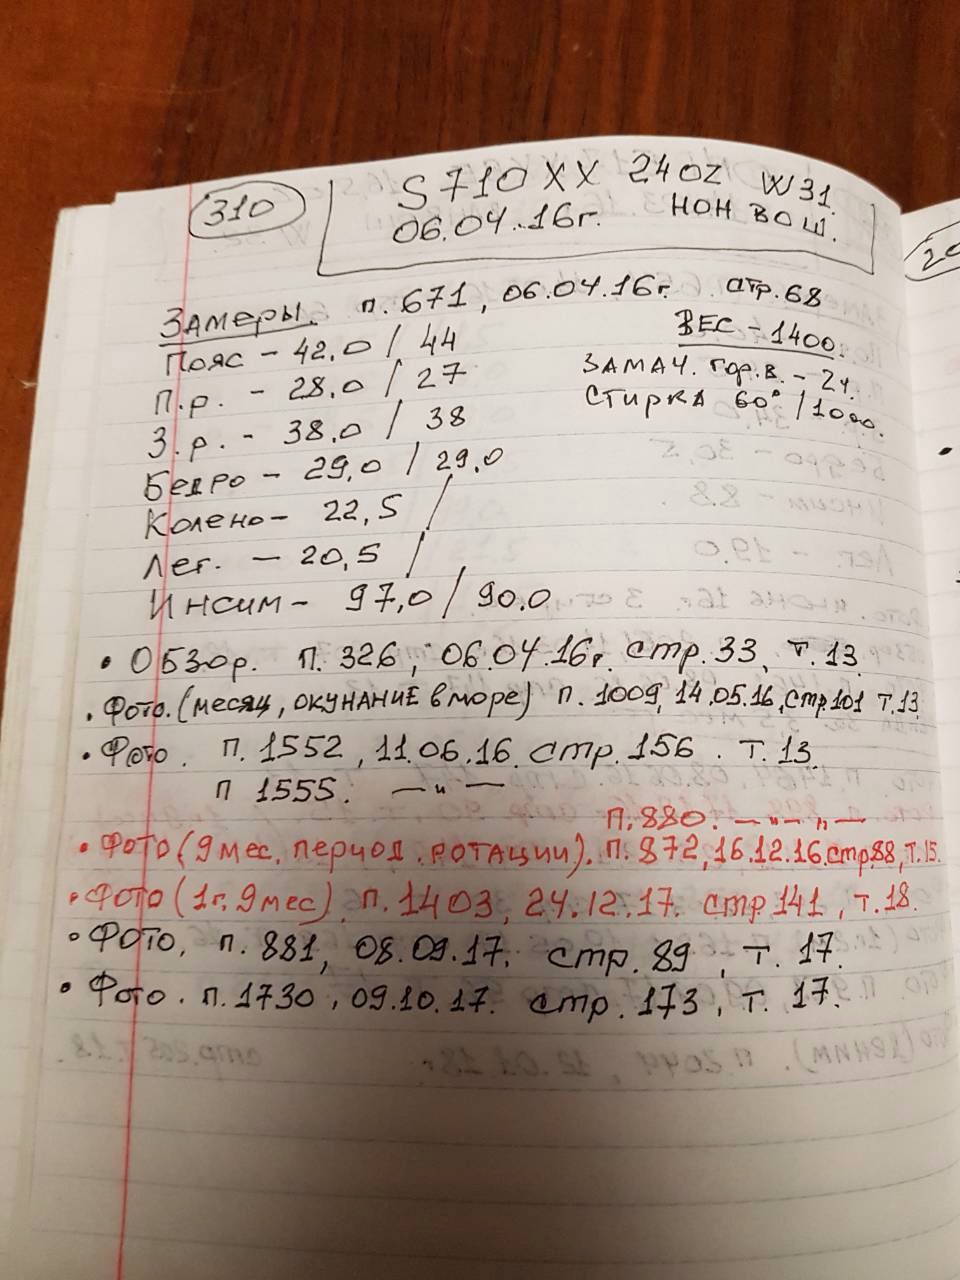 310
S710XX 24OZ W31.
06.04.16г. НОН ВОШ.
Замеры. п.671, 06.04.16г. стр.68
Пояс - 42.0 / 44
ВЕС - 1400.
П.р. - 28.0 / 27
ЗАМАЧ. гор.в. - 2ч.
З.р. - 38.0 / 38
СТИРКА 60° / 1000.
Бедро - 29,0 / 29.0
Колено - 22,5 /
Лег. - 20,5 /
Инсим - 97,0 / 90.0
• Обзор. п. 326, 06.04.16г. стр.33, т.13
• Фото. (месяц, окунание в море) п. 1009, 14.05.16, стр101 т.13
• Фото. п. 1552, 11.06.16 стр.156. т.13.
п 1555. —"—
п.880. —"—"—
• Фото (9 мес. период ротации). п. 872, 16.12.16.стр88, т.15.
• Фото (1г. 9мес) п.1403, 24.12.17. стр 141, т.18.
• Фото. п. 881, 08.09.17. стр. 89, т. 17.
• Фото. п.1730, 09.10.17. стр. 173, т. 17.